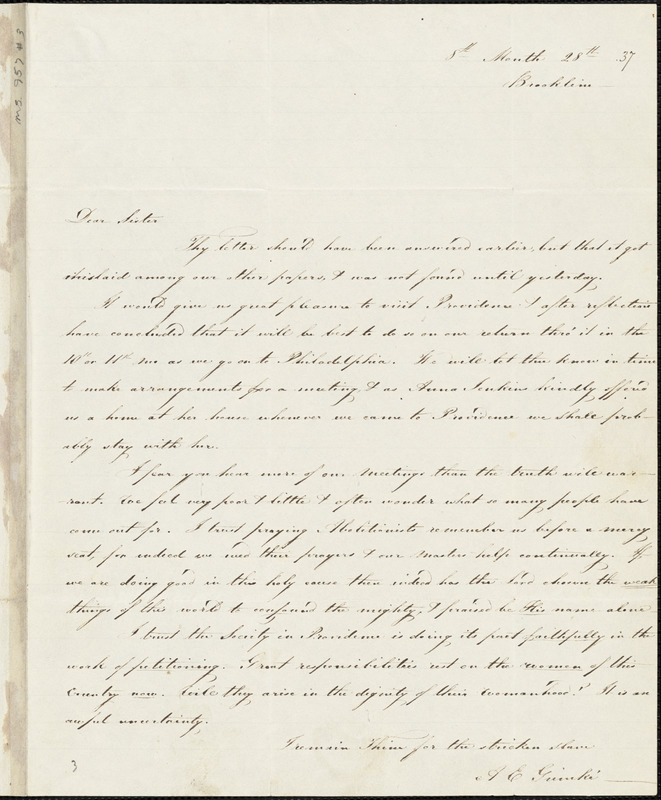 8th Month 28th .37
Brookline
Dear Sister
Thy letter should have been answered earlier, but that it got
mislaid among our other papers, & was not found until yesterday.
It would give us great pleasure to visit Providence & after reflection
have concluded that it will be best to do so on our return thro' it in the
10th or 11th mo as we go on to Philadelphia. We will let thee know in time
to make arrangements for a meeting, & as Anna Jenkins kindly offered
us a home at her house whenever we came to Providence we shall prob-
ably stay with her.
I fear you hear more of our meetings than the truth will war-
rant. We feel very poor & little & often wonder what so many people have
come out for. I trust praying Abolitionists remember us before a mercy
seat, for indeed we need their prayers & our Masters help continually. If
we are doing good in this holy cause then indeed has the Lord chosen the weak
things of this world to confound the mighty, & praised be His name alone
I trust the Society in Providence is doing its part faithfully in the
work of petitioning. Great responsibilities rest on the women of this
Country now. Will they arise in the dignity of their womanhood? It is an
awful uncertainty.
I remain Thine for the stricken slave
A E Grimké
3
MS. 957 #3